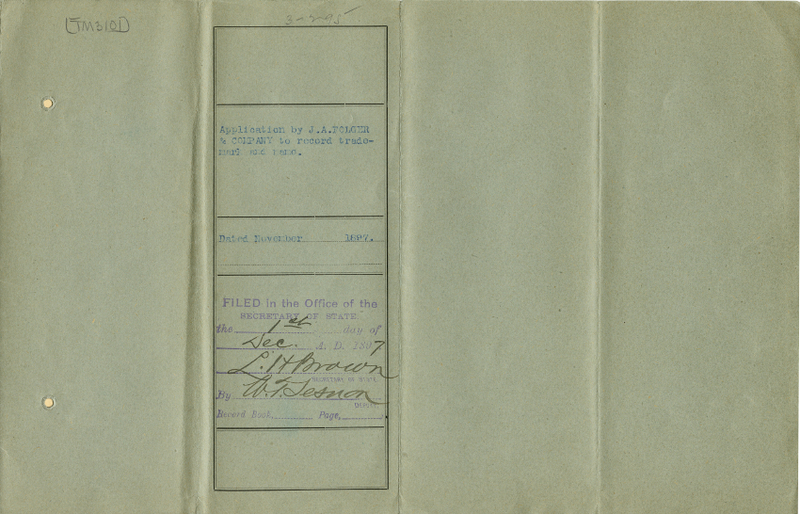 [TM3101]
3-2-95
Application by J.A.FOLGER
& COMPANY to record trade-
mark and name.
Dated November 1897.
FILED in the Office of the
SECRETARY OF STATE
the 1st day of
Dec. A. D. 1897
L. H Brown
SECRETARY OF STATE
By W. T. Sesnon
DEPUTY
Record Book Page